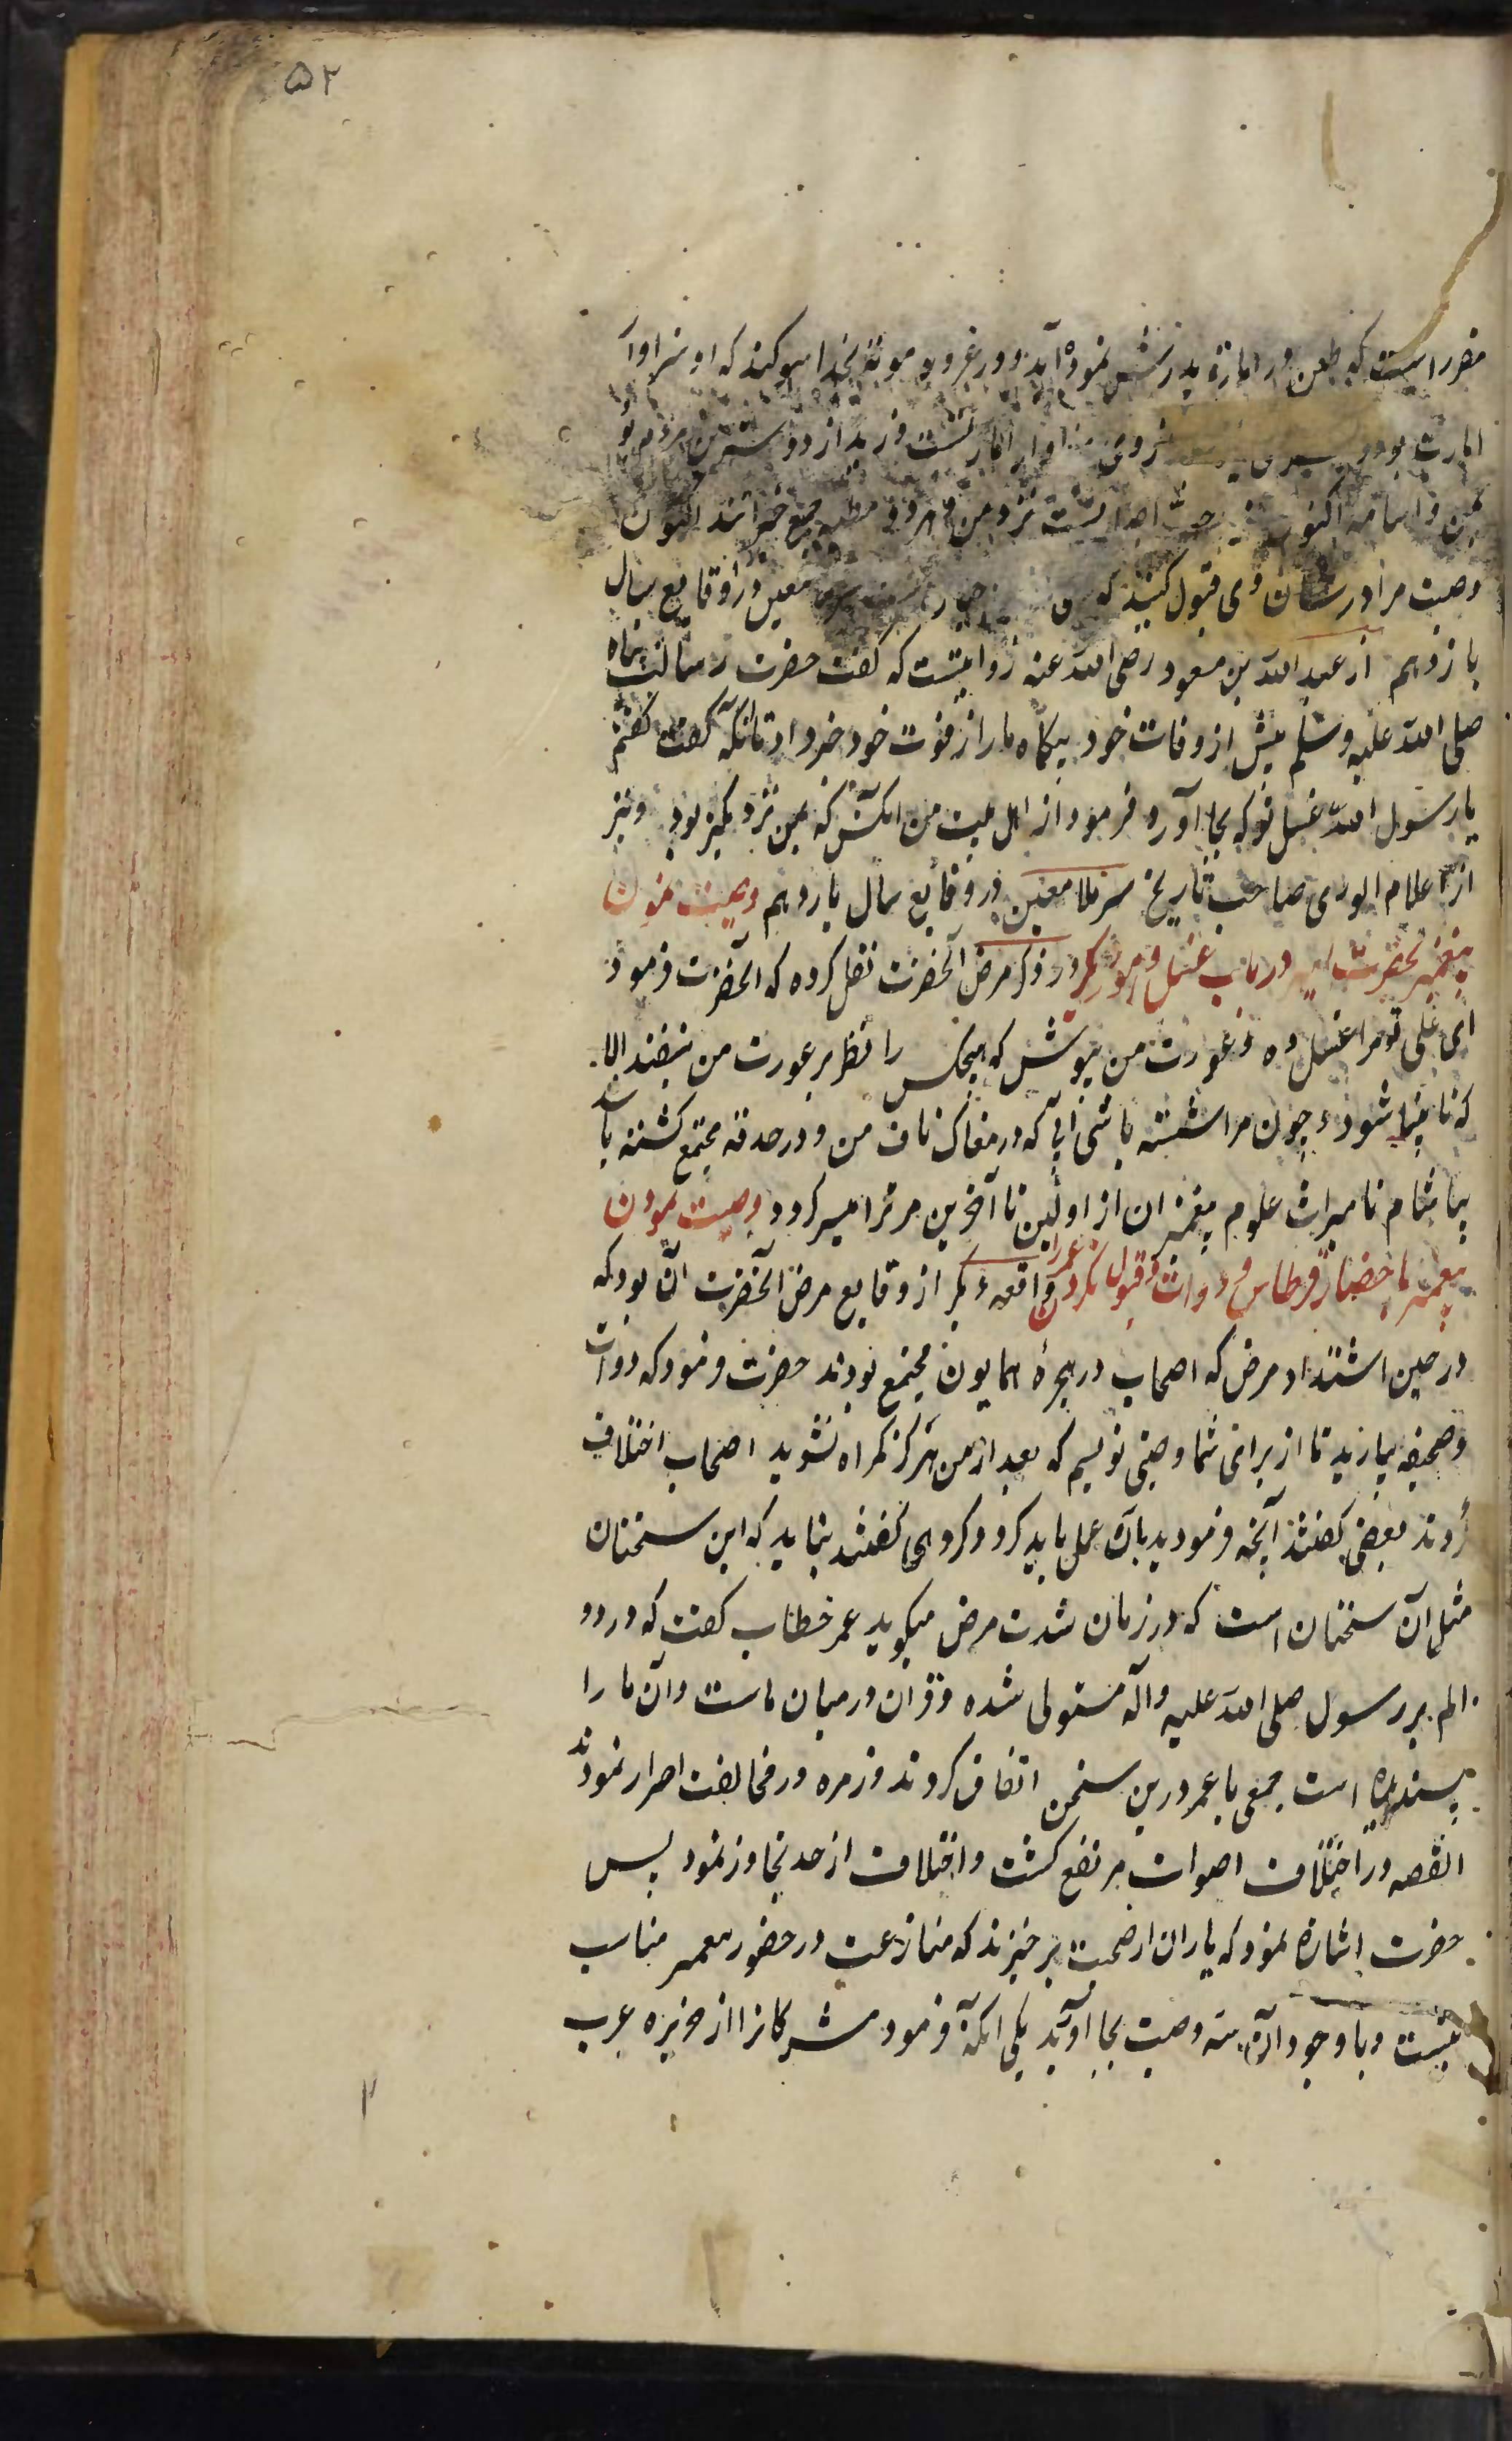 ۵۲
مقرر است که طعن در امارة پدرش نموده‌اند در غزوه موته بخدا سوگند که او سزاوار
امارت بود و پسر وی نیز بعد از وی سزاوار امارتست و زید از دوستترین مردم بود
بمن و اسامه اکنون نیز احب ناس است نزد من و هر دو مظنه جمیع خیراتند اکنون
وصیت مرا در شان وی قبول کنید که معین در وقایع سال
یازدهم از عبدالله بن مسعود رضی الله عنه روایتست که گفت حضرت رسالت پناه
صلی الله علیه وسلم پیش از وفات خود بیکماه ما را از فوت خود خبر داد تا آنکه گفت گفتم
یا رسول الله غسل تو که بجا آورد فرمود از اهل بیت من آنکس که بمن نزدیکتر بود و نیز
از اعلام الوری صاحب تاریخ سر ملا معین در وقایع سال یازدهم وصیت نمودن
پیغمبر بحضرت امیر در باب غسل و امور دیگر در ذکر مرض آنحضرت نقل کرده که آنحضرت فرمود
ای علی تو مرا غسل ده و عورت من بپوش که هیچکس را نظر بر عورت من نیفتد الا
که نابینا شود و چون مرا شسته باشی آبی که در مغاک ناف من و در حدقه مجتمع گشته باشد
بیاشام تا میراث علوم پیغمبران از اولین تا آخرین مر ترا میسر گردد وصیت نمودن
پیغمبر باحضار قرطاس و دوات و قبول نکردن عمر را واقعهء دیگر از وقایع مرض آنحضرت آن بود که
در حین اشتداد مرض که اصحاب در حجرهٔ همایون مجتمع بودند حضرت فرمود که دوات
و صحیفه بیارید تا از برای شما وصیتی نویسم که بعد از من هرگز گمراه نشوید اصحاب اختلاف
کردند بعضی گفتند آنچه فرمودید بآن عمل باید کرد و گروهی گفتند بباید که این سخنان
مثل آن سخنان است که در زمان شدت مرض میگوید عمر خطاب گفت که درد و
الم بر رسول صلی الله علیه وآله مستولی شده و قرآن در میان ماست و آن ما را
پسندیده است جمعی با عمر درین سخن اتفاق کردند و زمره در مخالفت اصرار نمودند
القصه در اختلاف اصوات مرتفع گشت و اختلاف از حد تجاوز نمود پس
حضرت اشاره نمود که یاران از صحبت برخیزند که منازعت در حضور پیغمبر مناسب
نیست و با وجود آن سه وصیت بجا آورد یکی آنکه فرمود مشرکانرا از جزیره عرب